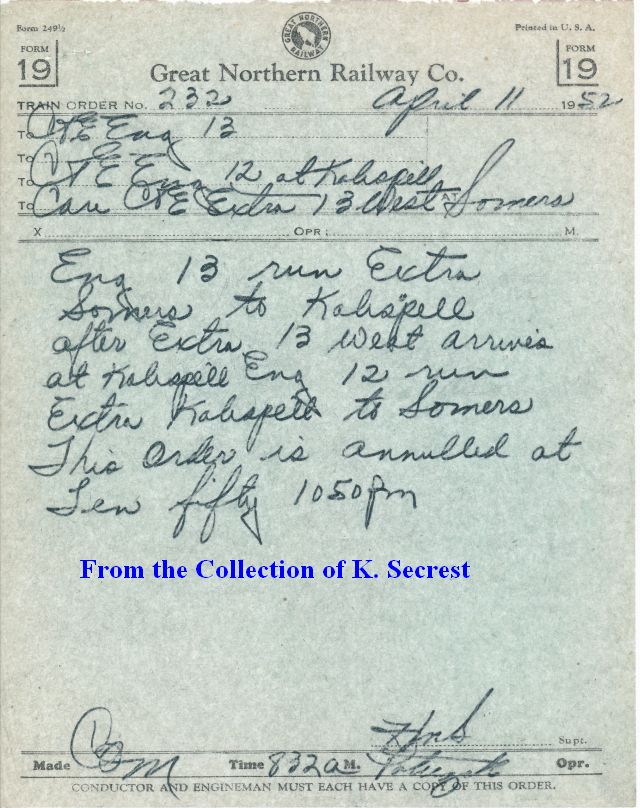 Form 249½ Printed in U. S. A.
FORM 19
GREAT NORTHERN RAILWAY
FORM 19
Great Northern Railway Co.
TRAIN ORDER No. 232 April 11 1952
To C&E Eng 13
To
To C&E Eng 12 at Kalispell
To Care C&E Extra 13 West At Somers
X OPR: M.
Eng 13 run Extra
Somers to Kalispell
after Extra 13 West arrives
at Kalispell Eng 12 run
Extra Kalispell to Somers
This Order is annulled at
Ten fifty 1050pm
From the Collection of K. Secrest
Supt.
Made Com Time 832a M. Opr.
CONDUCTOR AND ENGINEMAN MUST EACH HAVE A COPY OF THIS ORDER.